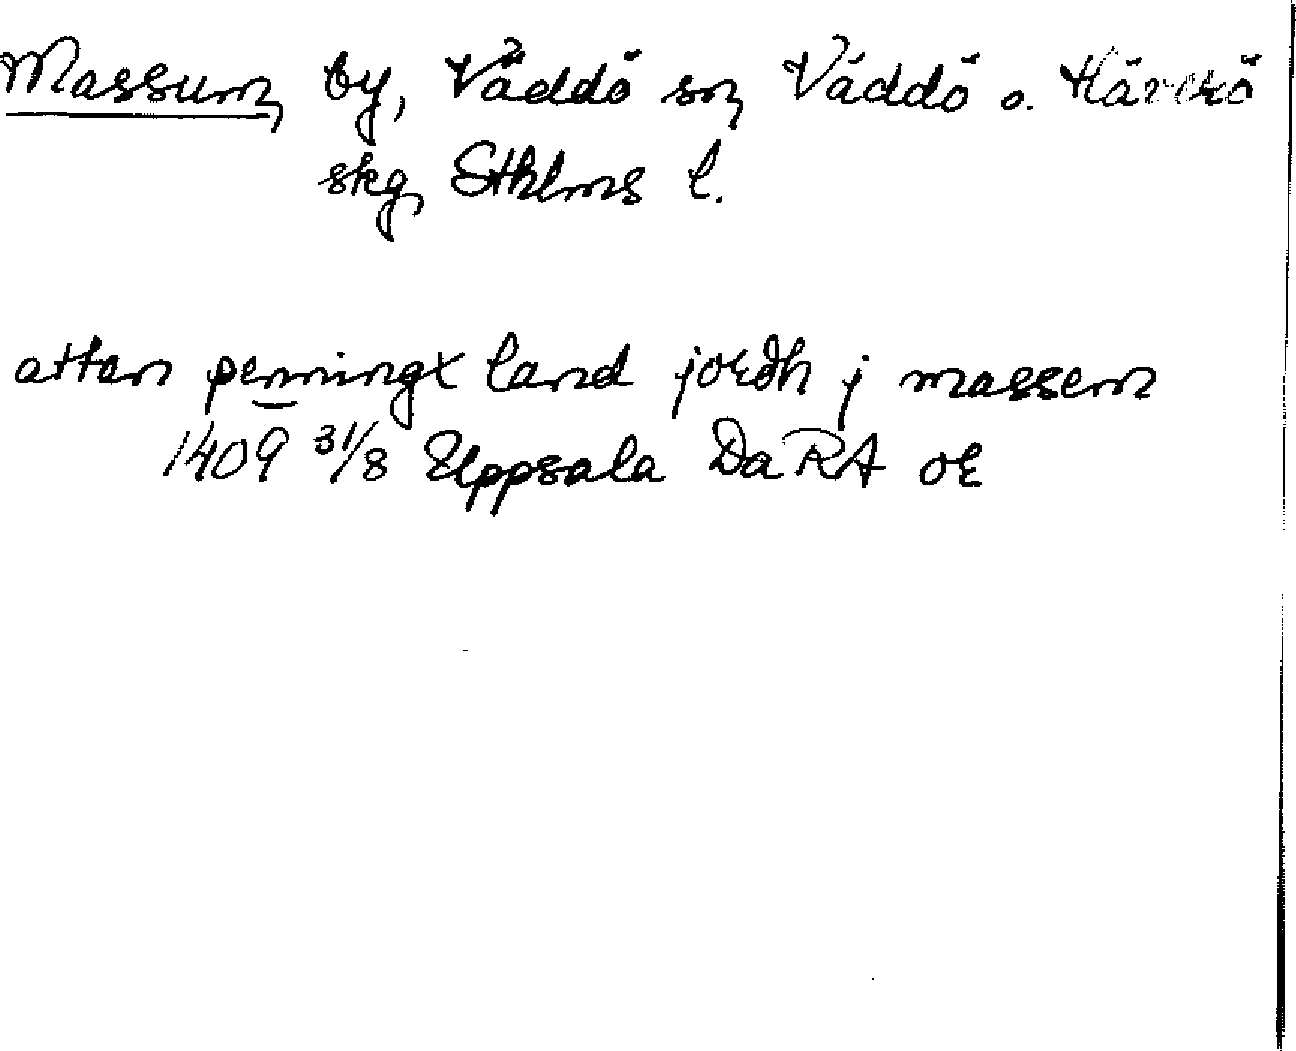 Massum, by, Väddö sn, Väddö o. Häverö
skg, Sthlms l.
attan penningx land jordh j massem
1409 31/8 Uppsala Da RA or